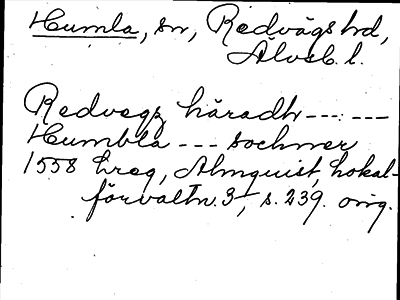 Humla, sn, Redvägs hd,
Älvsb. l.
Redvegz häradh --- ---
Humbla --- sochner
1558 Lreg, Almquist, Lokal-
förvaltn. 3, s. 239. orig.